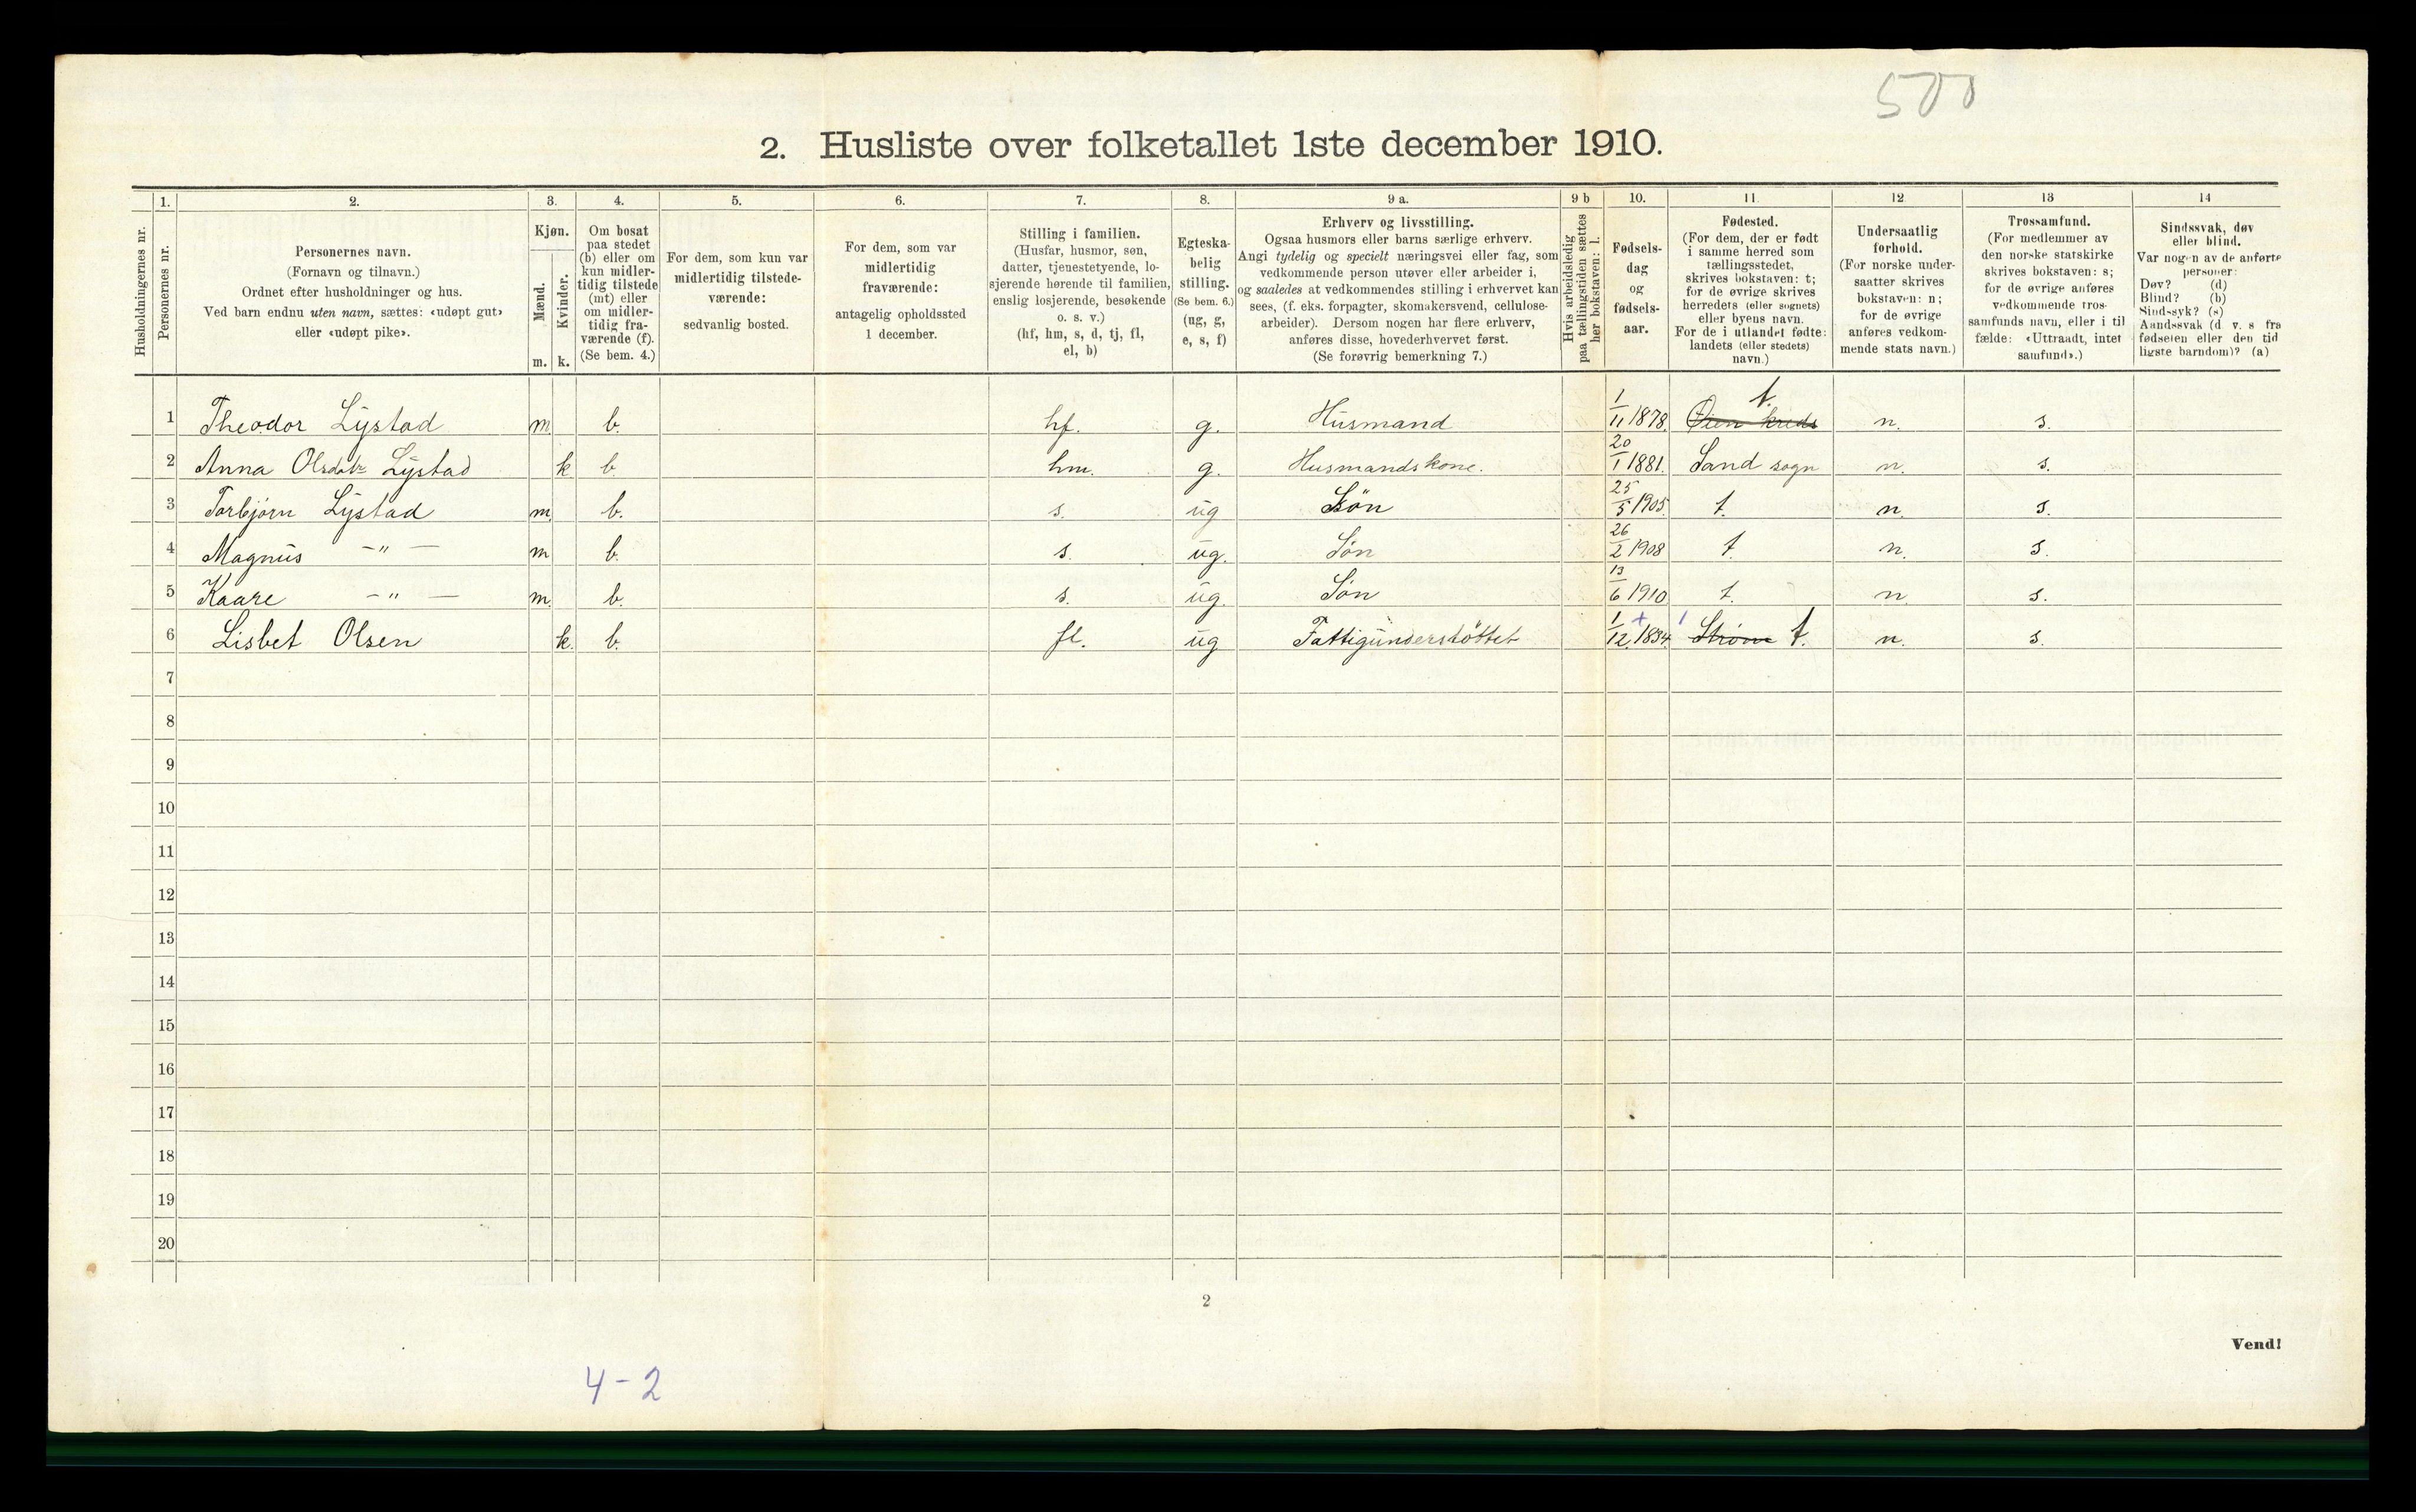 500
2. Husliste over folketallet 1ste december 1910.
Husholdningernes nr.
1.
Personernes nr.
2.
Personernes navn.
(Fornavn og tilnavn.)
Ordnet efter husholdninger og hus.
Ved barn endnu uten navn, sættes: «udøpt gut»
eller «udøpt pike».
3.
Kjøn.
Mænd.
m.
Kvinder.
k.
4.
Om bosat
paa stedet
(b) eller om
kun midler-
tidig tilstede
(mt) eller
om midler-
tidig fra-
værende (f).
(Se bem. 4.)
5.
For dem, som kun var
midlertidig tilstede-
værende:
sedvanlig bosted.
6.
For dem, som var
midlertidig
fraværende:
antagelig opholdssted
1 december.
7.
Stilling i familien.
(Husfar, husmor, søn,
datter, tjenestetyende, lo-
sjerende hørende til familien,
enslig losjerende, besøkende
o. s. v.)
(hf, hm, s, d, tj, fl,
el, b)
8.
Egteska-
belig
stilling.
(Se bem. 6.)
(ug, g,
e, s, f)
9 a.
Erhverv og livsstilling.
Ogsaa husmors eller barns særlige erhverv.
Angi tydelig og specielt næringsvei eller fag, som
vedkommende person utøver eller arbeider i,
og saaledes at vedkommendes stilling i erhvervet kan
sees, (f. eks. forpagter, skomakersvend, cellulose-
arbeider). Dersom nogen har flere erhverv,
anføres disse, hovederhvervet først.
(Se forøvrig bemerkning 7.)
9 b
Hvis arbeidsledig
paa tællingstiden sættes
her bokstaven: l.
10.
Fødsels-
dag
og
fødsels-
aar.
11.
Fødested.
(For dem, der er født
i samme herred som
tællingsstedet,
skrives bokstaven: t;
for de øvrige skrives
herredets (eller sognets)
eller byens navn.
For de i utlandet fødte:
landets (eller stedets)
navn.)
12
Undersaatlig
forhold.
(For norske under-
saatter skrives
bokstaven: n;
for de øvrige
anføres vedkom-
mende stats navn.)
13
Trossamfund.
(For medlemmer av
den norske statskirke
skrives bokstaven: s;
for de øvrige anføres
vedkommende tros-
samfunds navn, eller i til
fælde: «Uttraadt, intet
samfund».)
14
Sindssvak, døv
eller blind.
Var nogen av de anførte
personer:
Døv? (d)
Blind? (b)
Sindssyk? (s)
Aandssvak (d. v. s. fra
fødselen eller den tid
ligste barndom)? (a)
1 Theodor Lystad m b. hf. g. Husmand 1/11 1878. Øien kreds t. n. s.
2 Anna Olsdatr Lystad k b. hm. g. Husmandskone. 20/1 1881. Sand sogn n. s.
3 Torbjørn Lystad m b. s. ug Søn 25/5 1905. t. n. s.
4 Magnus -"- m b. s. ug. Søn 26/2 1908 t. n. s.
5 Kaare -"- m. b. s. ug. Søn 13/6 1910 t. n s.
6 Lisbet Olsen k. b. fl. ug Fattigunderstöttet 1/12 1834. Strøm t. n. s.
7
8
9
10
11
12
13
14
15
16
17
18
19
20
2
Vend!
4-2